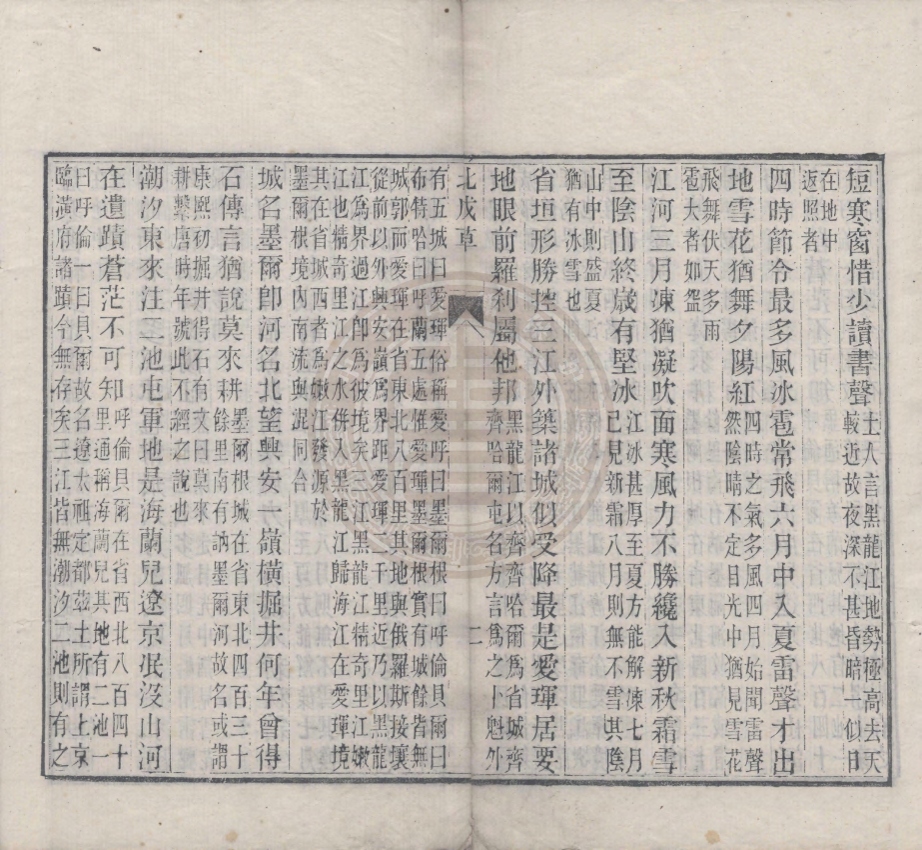 短寒窗惜少讀書聲土人言黑龍江地勢極高去天
較近故夜深不甚昏暗似日
在地中
返照者
四時節令最多風冰雹常飛六月中入夏雷聲才出
地雪花猶舞夕陽紅四時之氣多風四月始聞雷聲
然陰晴不定日光中猶見雪花
飛舞伏天多雨
雹大者如盌
江河三月凍猶凝吹面寒風力不勝纔入新秋霜雪
至陰山終歲有堅冰江冰甚厚至夏方能解凍七月
已見新霜八月則無不雪其陰
山中則盛夏
猶有冰雪也
省垣形勝控三江外築諸城似受降最是愛琿居要
地眼前羅剎屬他邦黑龍江以齊齊哈爾爲省城齊
齊哈爾屯名方言爲之卜魁外
北戍草
二
有五城曰愛琿俗稱愛呼曰墨爾根曰呼倫貝爾曰
布特哈曰呼蘭五處惟愛琿墨爾根實有城餘皆無
城郭而愛琿在省東北八百里其地與俄羅斯接壤
從前以外興安嶺爲界距愛琿二千里近乃以黑龍
江爲界過江卽爲彼境矣三江黑龍江精奇里江嫩
江也精奇里江之水併入黑龍江歸海江在愛琿境
其在省城西者爲嫩江發源於
墨爾根境內南流與混同合
城名墨爾卽河名北望興安一嶺橫掘井何年曾得
石傳言猶說莫來耕墨爾根城在省東北四百三十
餘里南有訥墨爾河故名或謂
康熙初掘井得石有文曰莫來
耕擊唐時年號此不經之說也
潮汐東來注二池屯軍地是海蘭兒遼京泯沒山河
在遺蹟蒼茫不可知呼倫貝爾在省西北八百四十
里通稱海蘭兒其地有二池一
曰呼倫一曰貝爾故名遼太祖定都茲土所謂上京
臨潢府諸蹟今無存矣三江皆無潮汐二池則有之